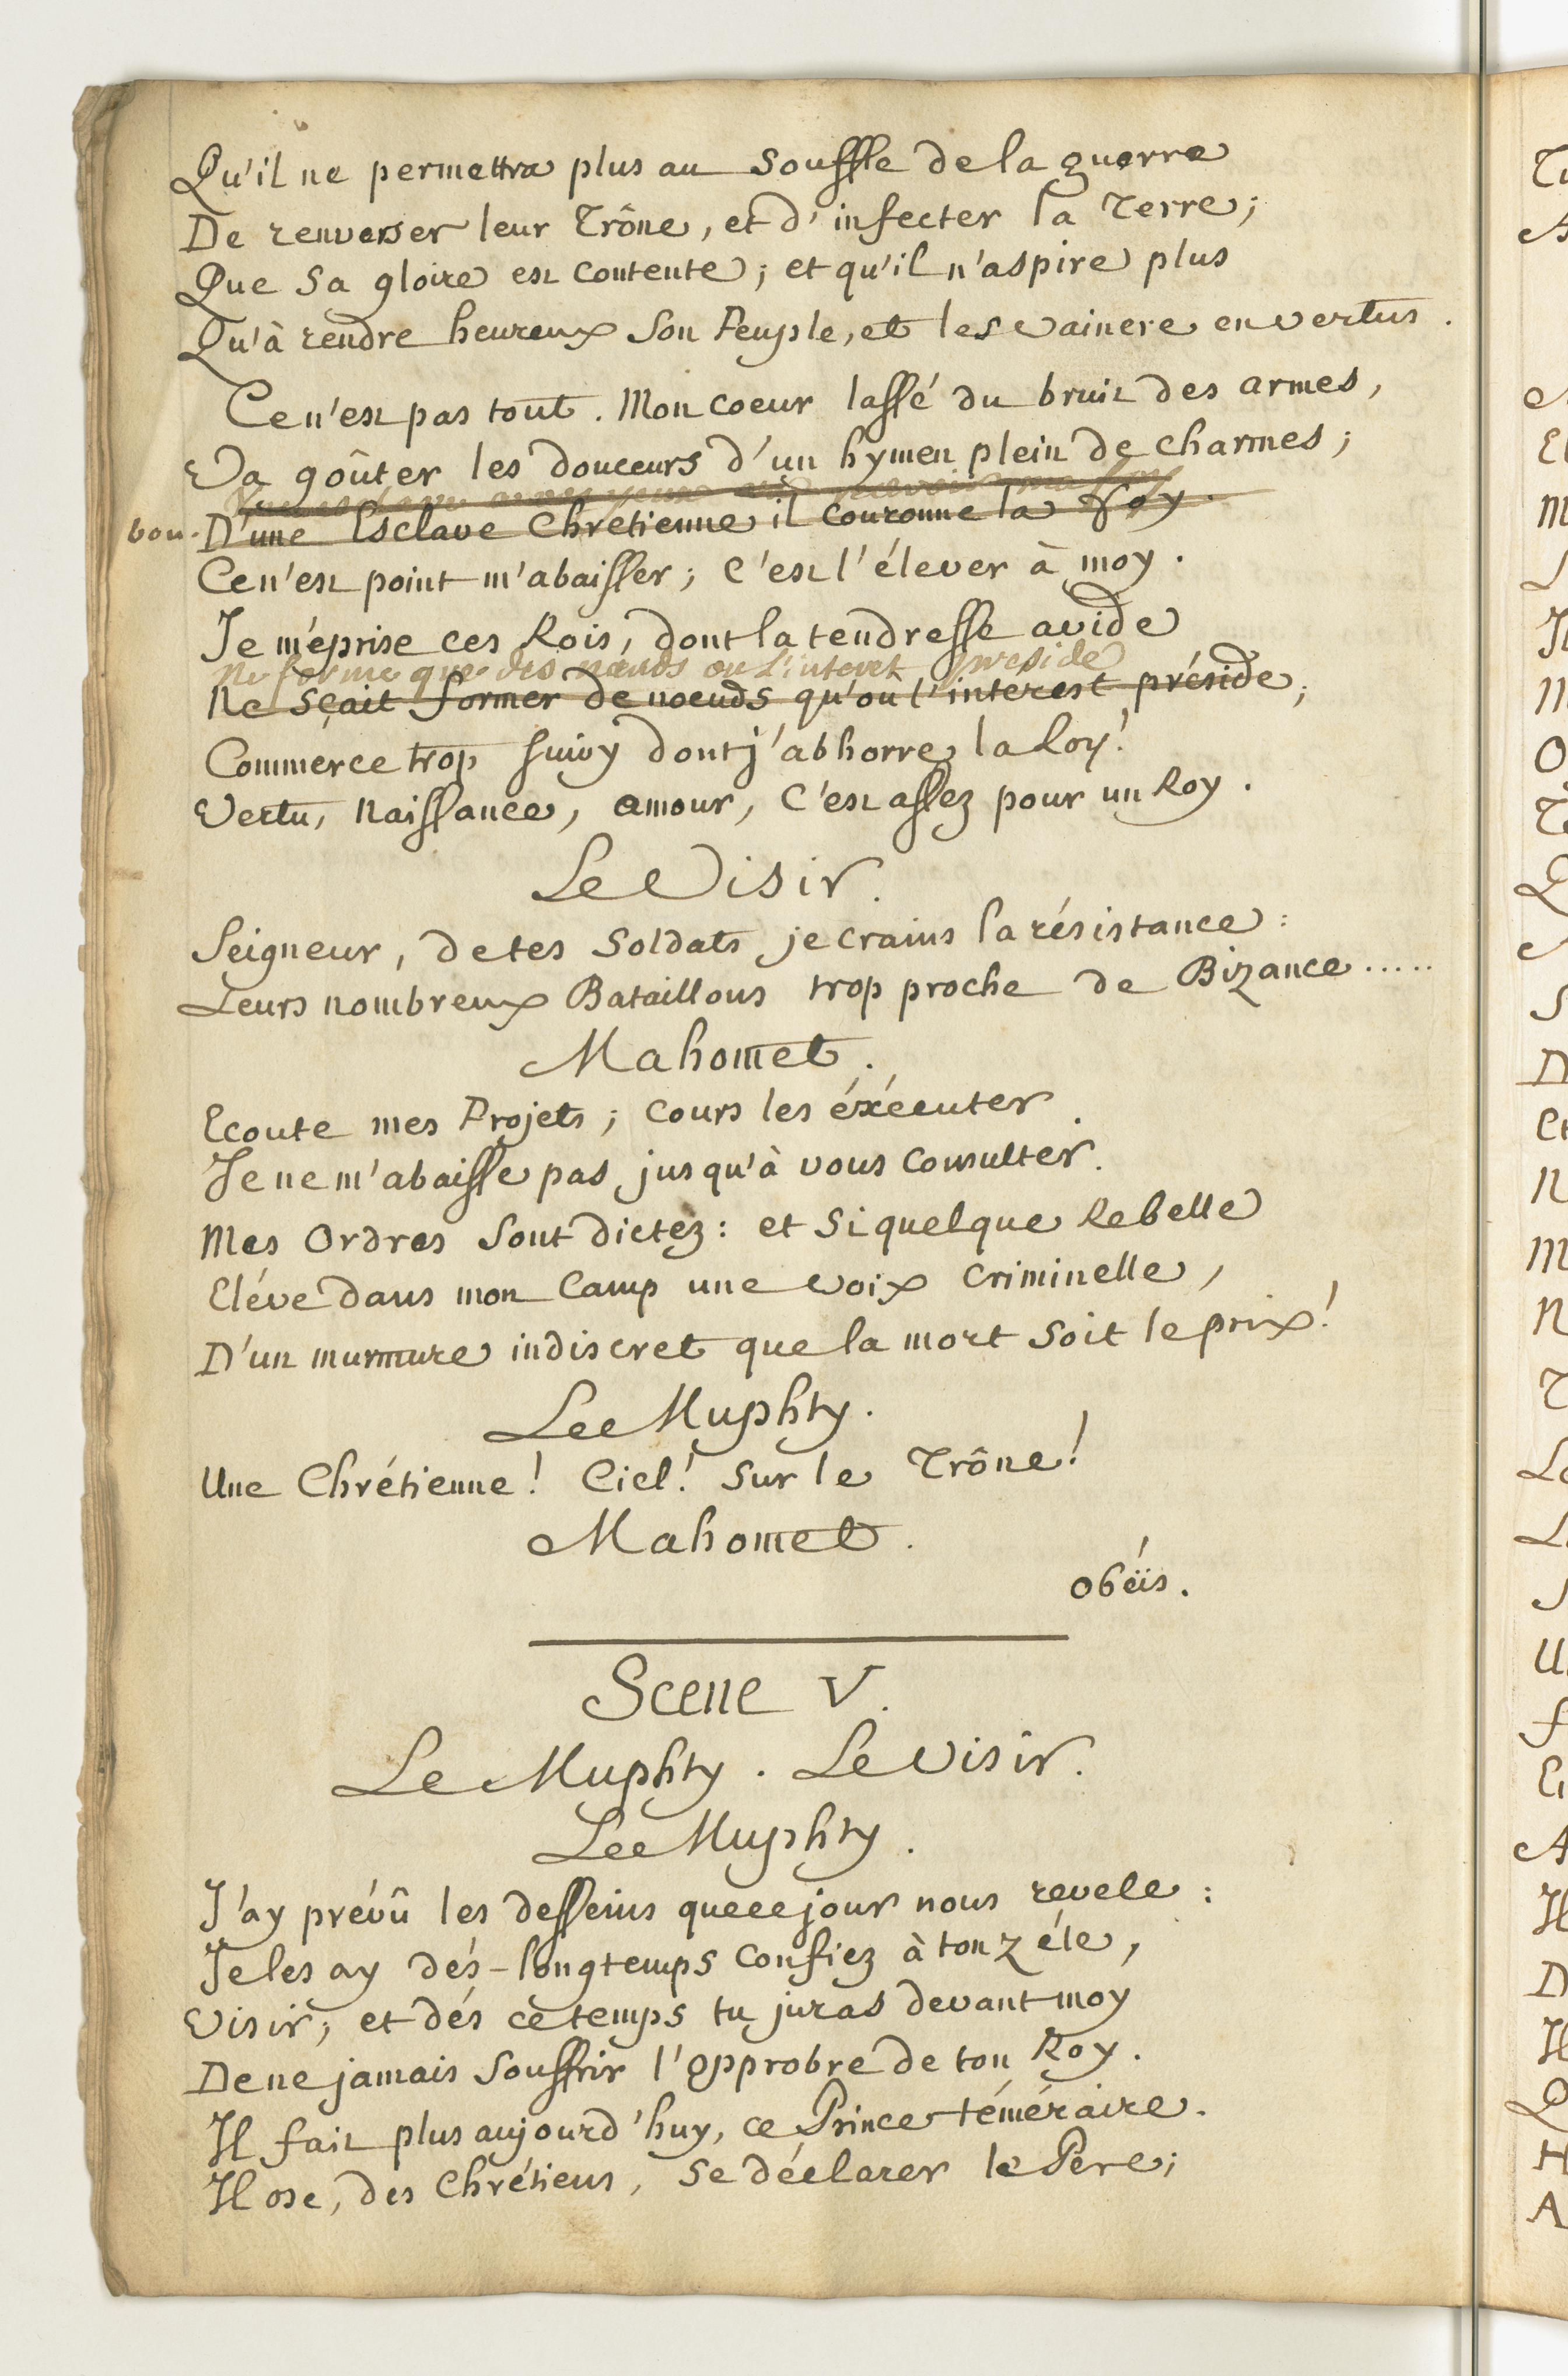 Qu'il ne permettra plus au souffle de la guerre
De renverser leur Trône, et d'infecter la Terre;
Que sa gloire est contente; et qu'il n'aspire plus
Qu'à rendre heureux son Peuple, et les vaincre en vertus.
Ce n'est pas tout. Mon coeur lassé du bruit des armes,
Va goûter les douceurs d'un hymen plein de charmes;
recevoir ma foy
bon. D'une Esclave Chrétienne il couronne la foy.
Ce n'est point m'abaisser; c'est l'élever à moy.
Je méprise ces Rois, dont la tendresse avide
Ne forme que des noeuds ou l'interet preside
Ne sçait former de noeuds qu'ou l'intérest préside;
Commerce trop suivy dont j'abhorre la Loy!
Vertu, Naissance, amour, c'est assez pour un Roy.
Le Visir.
Seigneur, de tes Soldats je crains la résistance:
Leurs nombreux Bataillons trop proche de Bizance.....
Mahomet.
Ecoute mes Projets; cours les éxécuter.
Je ne m'abaisse pas jusqu'à vous consulter.
Mes Ordres sont dictez: et si quelque Rebelle
Eléve dans mon Camp une voix criminelle,
D'un murmure indiscret que la mort soit le prix!
Le Muphty.
Une Chrétienne! Ciel! sur le Trône!
Mahomet.
obéïs.
Scene V.
Le Muphty. Le Visir.
Le Muphty.
J'ay prévû les desseins que ce jour nous revele:
Je les ay dés-longtemps confiez à ton zéle,
Visir; et dés ce temps tu juras devant moy
De ne jamais souffrir l'opprobre de ton Roy.
Il fait plus aujourd'huy, ce Prince téméraire.
Il ose, des Chrétiens, se déclarer le Pere;